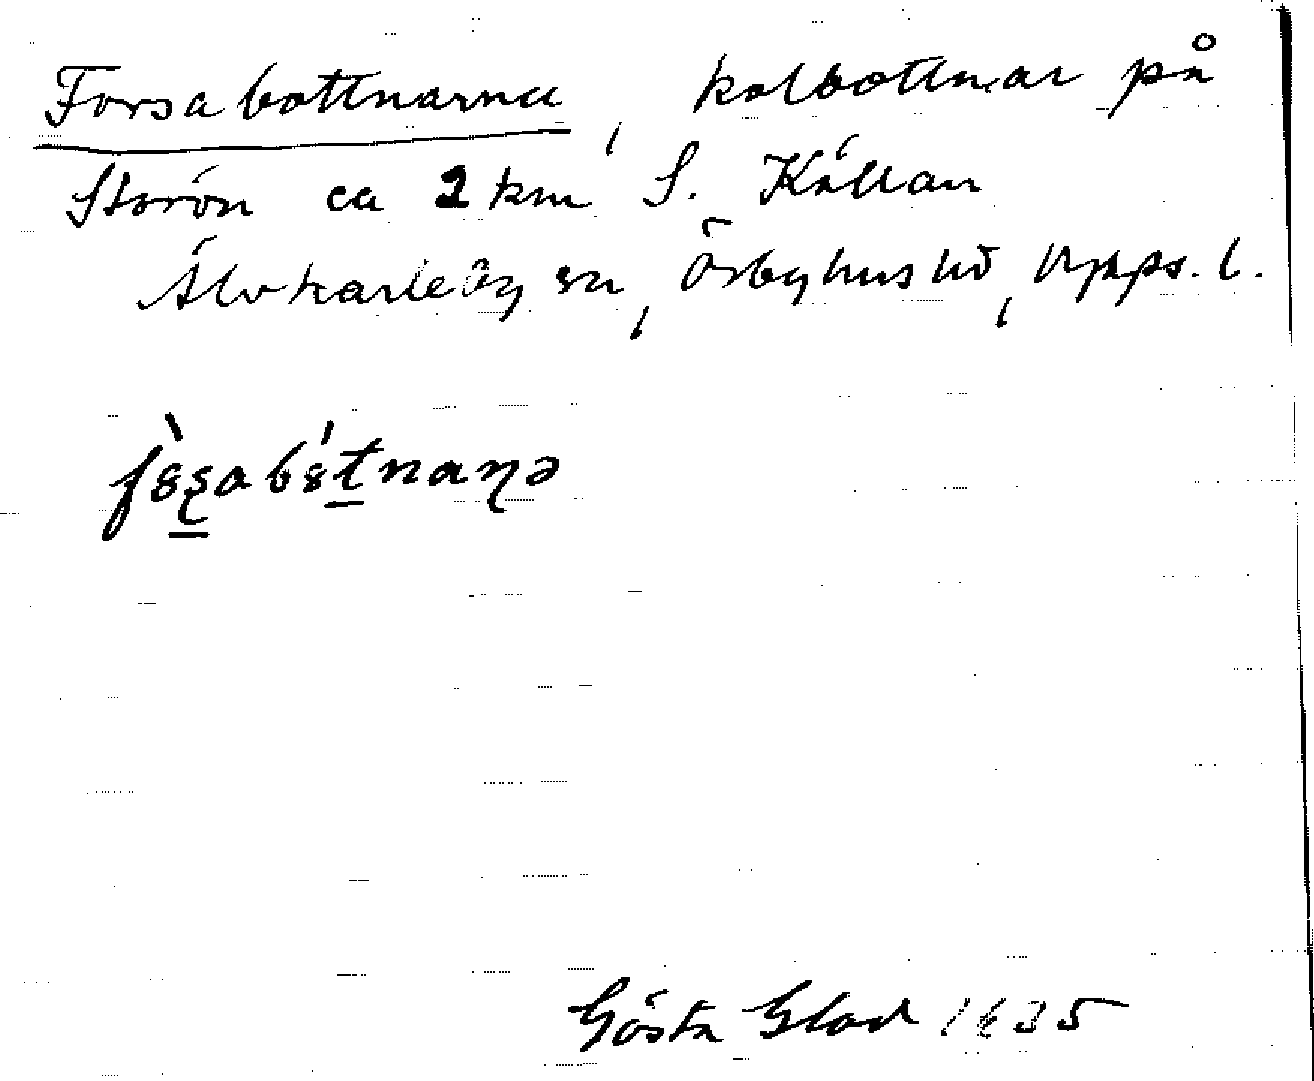 Forsabottnarna, kolbottnar på
Storön ca 2 km S. Källan
Älvkarleby sn, Örbyhus hd, Upps. l.
fɞ̀ʂabɞ́tnaɳə
Gösta Glad 1935